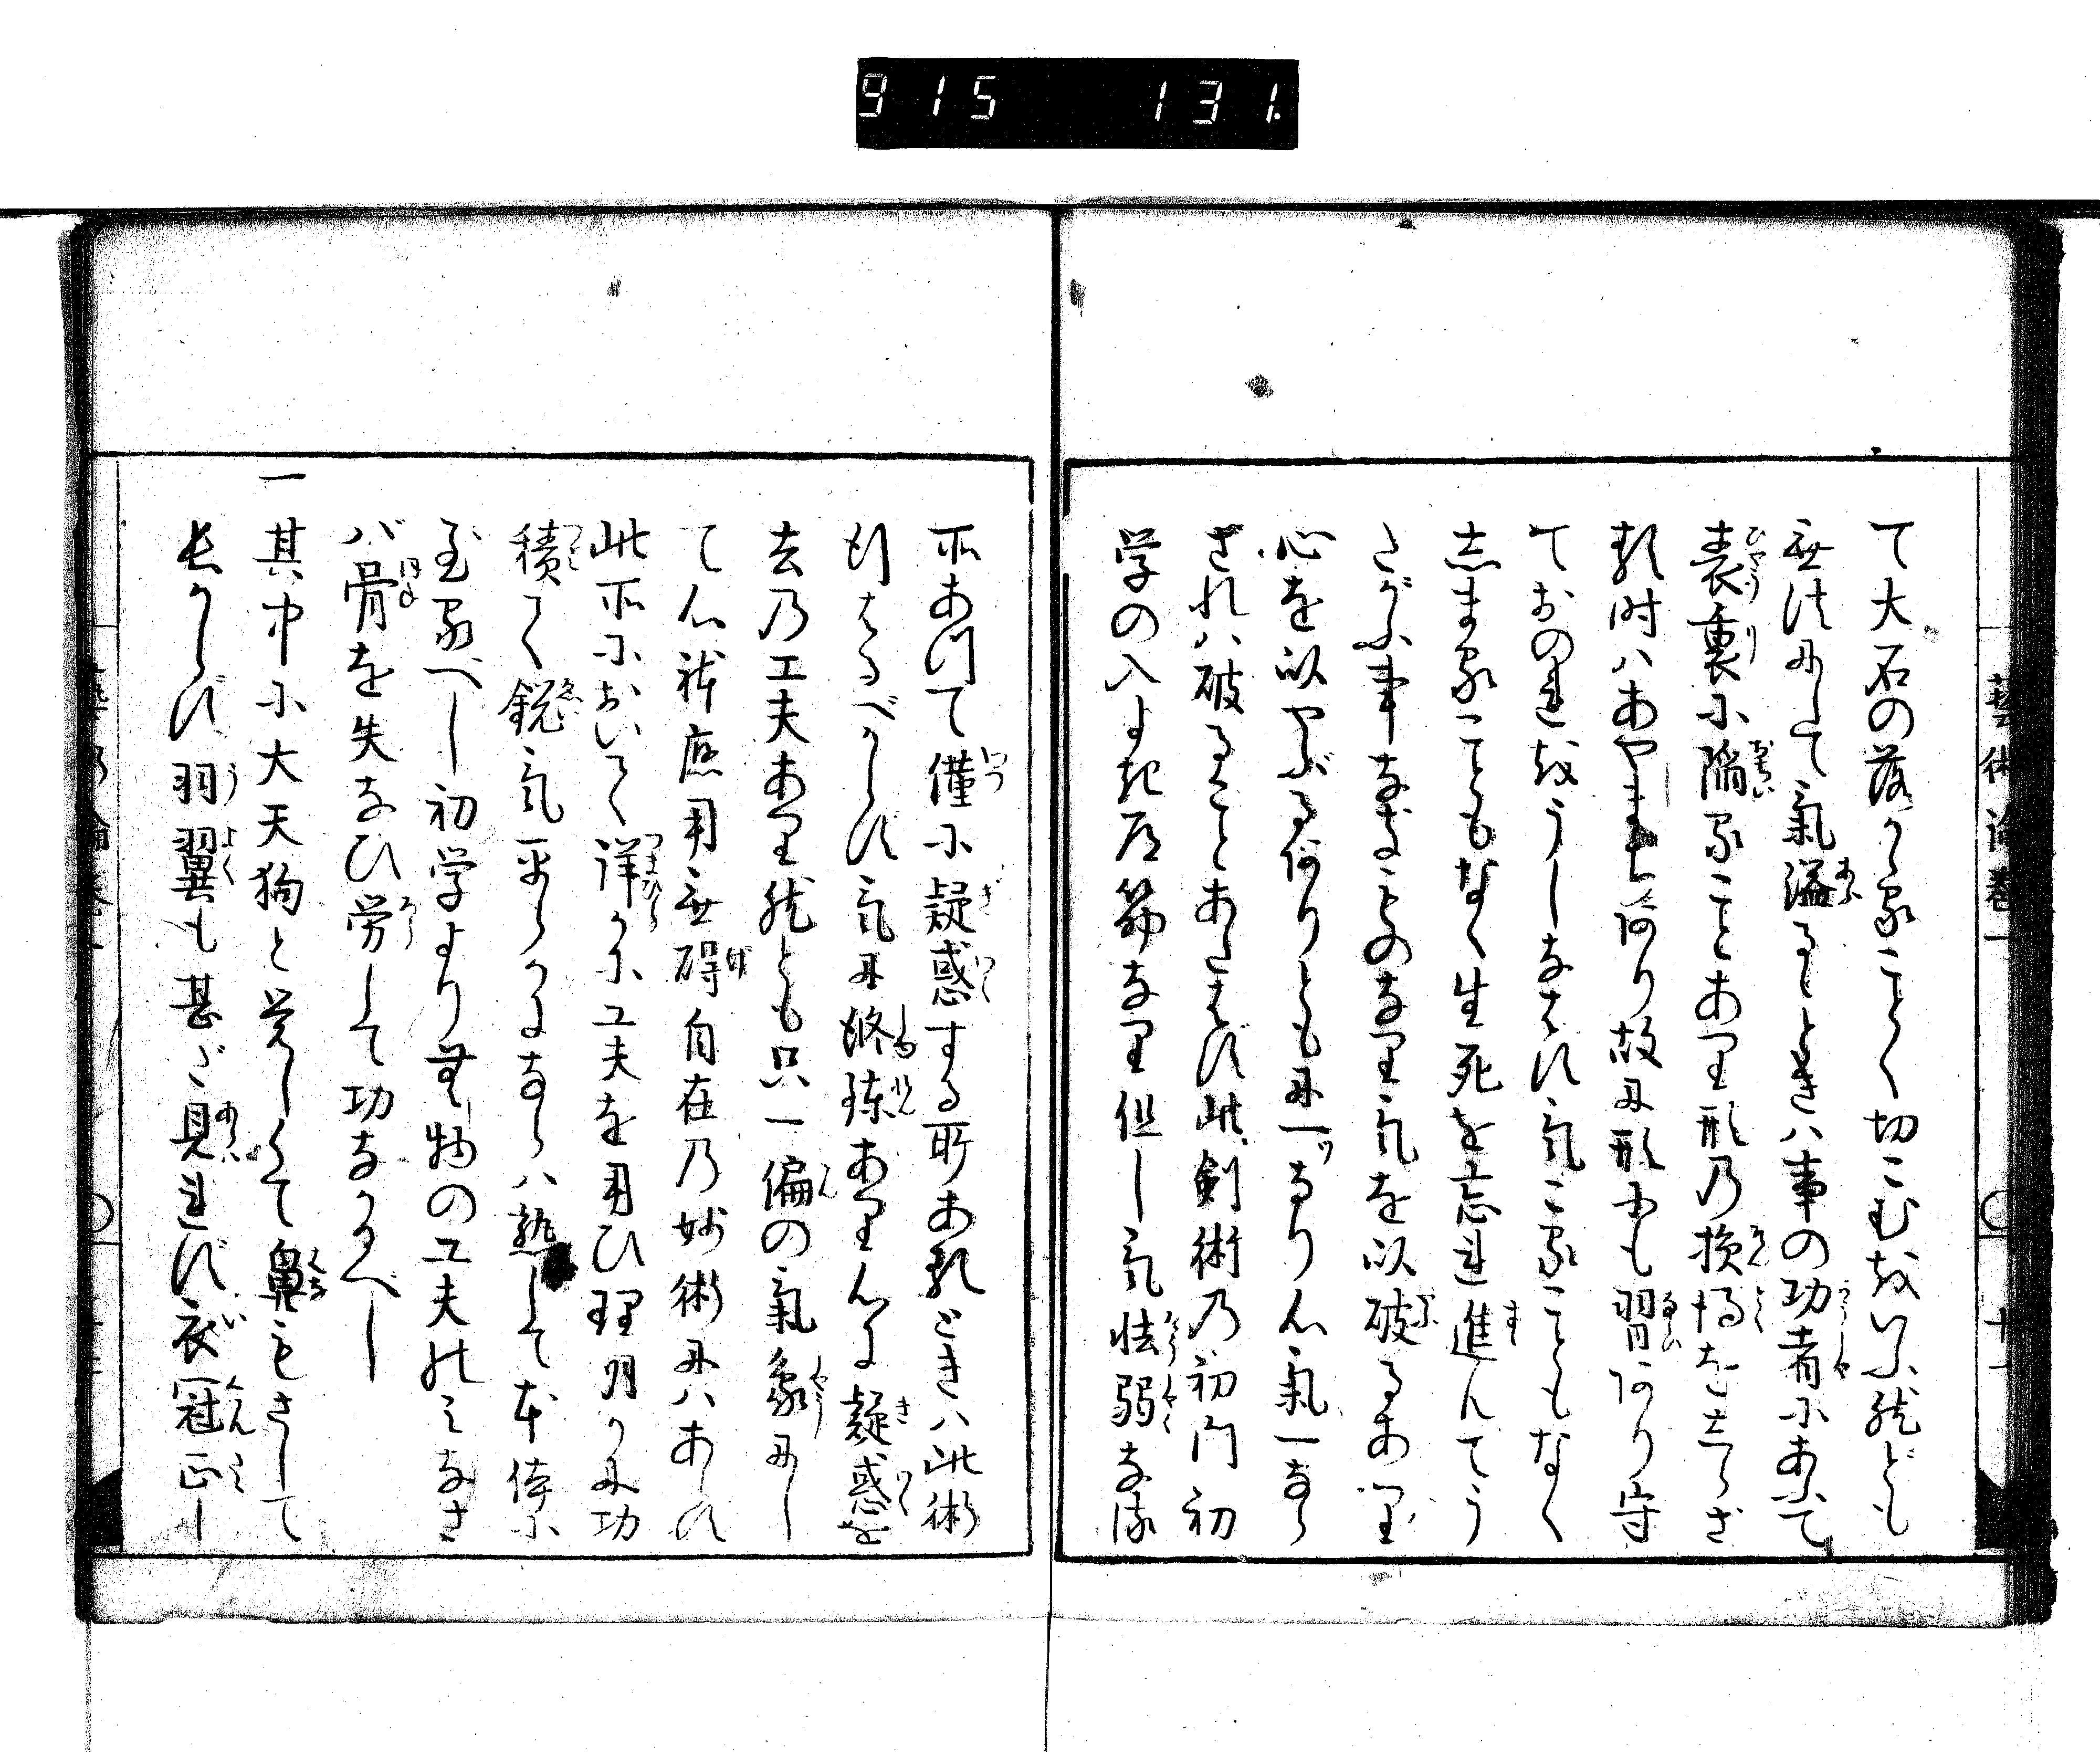 915 131.
藝術論巻一 〇 十一
て大石の落かゝることく切こむをいふ然ども
無法にして氣溢るゝときハ事の功者にあふて
表裏に陥ることあり形乃損得をしらざ
る時ハあやまち何り故に形にも習何り守
ておのれをうしなはず氣こることもなく
しまることもなく生死を忘れ進んてう
たがふ事なきものなり氣を以破るあり
心を以やぶる何りとも に一ツなり心氣一なら
ざれハ破ることあたはず此剣術乃初門初
学の入よき道筋なり但し氣怯弱なる
所あつて僅に疑惑する所あるときハ此術
行はるべからず氣に修錬あり心に疑惑を
去乃工夫あり然とも只一偏の氣象にし
て心躰應用無碍自在乃妙術にハあらず
此所においてく詳かに工夫を用ひ理明かに功
積てく鋭氣平らかにならハ熟して本体に
至るべし初学より無物の工夫のミなさ
バ骨を失なひ労して功なかるべし
一其中に大天狗と覚しくて鼻もさして
長からず羽翼も甚ダ見れず衣冠正し